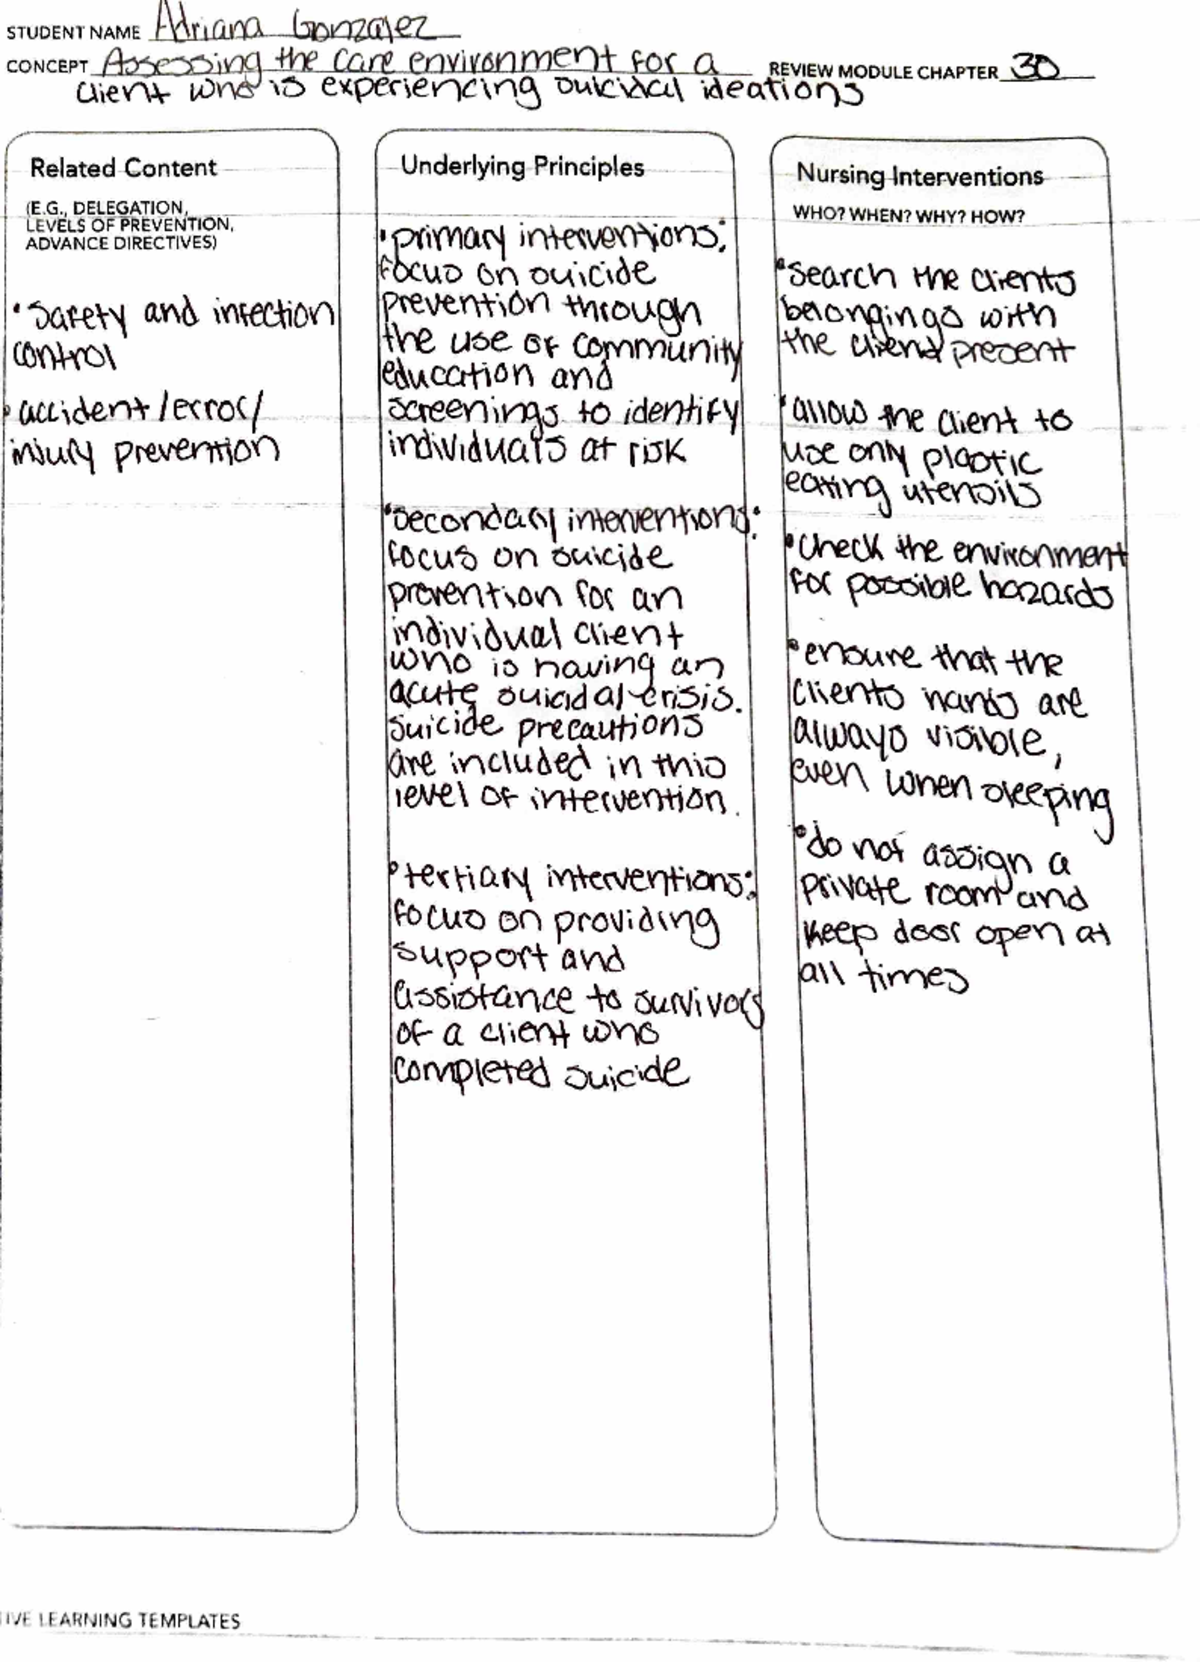 STUDENT NAME Adriana Gonzalez
CONCEPT Assessing the care environment for a REVIEW MODULE CHAPTER 30
client who is experiencing suicidal ideations
Related Content
(E.G., DELEGATION,
LEVELS OF PREVENTION,
ADVANCE DIRECTIVES)
• Safety and infection
control
• accident/error/
injury prevention
Underlying Principles
• primary interventions:
focus on suicide
prevention through
the use of community
education and
screenings to identify
individuals at risk
• secondary interventions:
focus on suicide
prevention for an
individual client
who is having an
acute suicidal crisis.
suicide precautions
are included in this
level of intervention.
• tertiary interventions:
focus on providing
support and
assistance to survivors
of a client who
completed suicide
Nursing Interventions
WHO? WHEN? WHY? HOW?
• search the clients
belongings with
the client present
• allow the client to
use only plastic
eating utensils
• check the environment
for possible hazards
• ensure that the
clients hands are
always visible,
even when sleeping
• do not assign a
private room and
keep door open at
all times
IVE LEARNING TEMPLATES